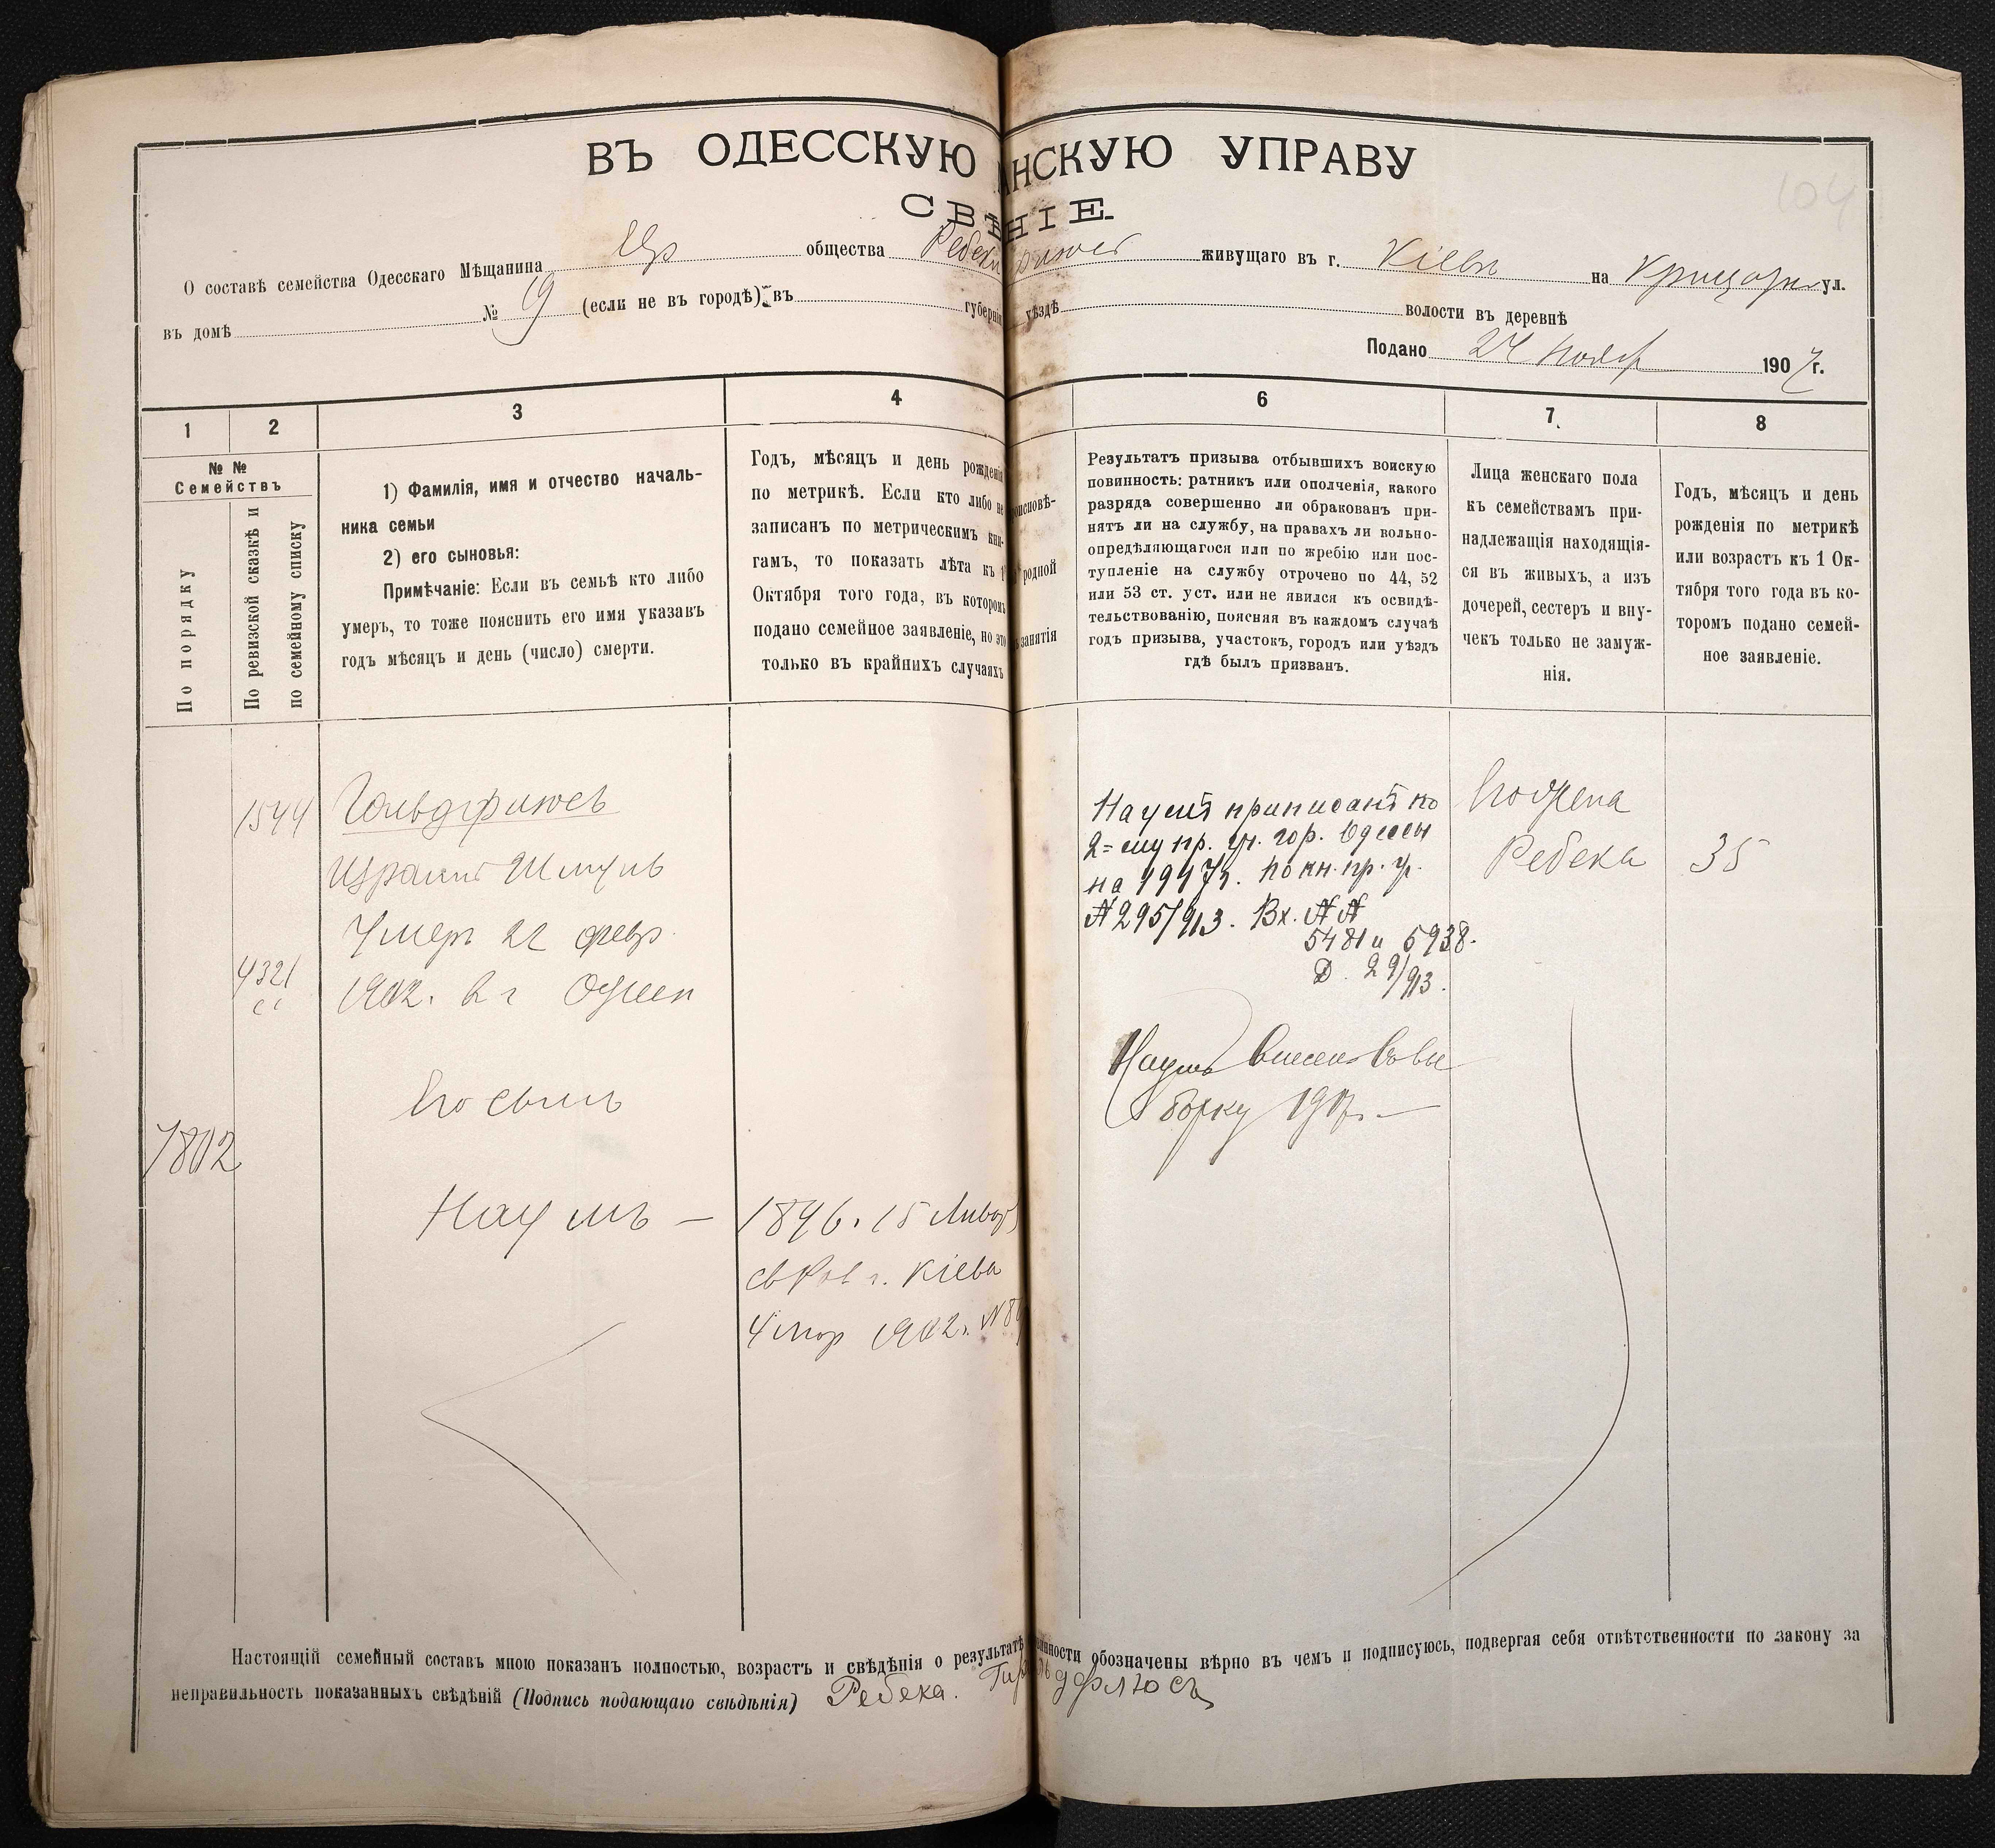 ВЪ ОДЕССКУЮ НСКУЮ УПРАВУ
СВѢНІЕ
О составѣ семейства Одесскаго Мѣщанина Евр общества Ребеки фиюсъ живущаго въ г. Кіевѣ на ул.
въ домѣ № 9 (если не въ городѣ) въ губерніи уѣздѣ волости въ деревнѣ
Подано 24 Ноябр 1907 г.
1 2 3 4 6 7 8
№ № Семействъ
По порядку
По ревизской сказкѣ и по семейному списку
1) Фамилія, имя и отчество началь-
ника семьи
2) его сыновья:
Примѣчаніе: Если въ семьѣ кто либо
умеръ, то тоже пояснить его имя указавъ
годъ мѣсяцъ и день (число) смерти.
Годъ, мѣсяцъ и день рожденія
по метрикѣ. Если кто либо не
записанъ по метрическимъ кни-
гамъ, то показать лѣта къ 1
Октября того года, въ которомъ
подано семейное заявленіе, но это
только въ крайнихъ случаяхъ
оисповѣ-
родной
занятія
Результатъ призыва отбывшихъ воискую
повинность: ратникъ или ополченія, какого
разряда совершенно ли обракованъ при-
нятъ ли на службу, на правахъ ли вольно-
опредѣляющагося или по жребію или пос-
тупленіе на службу отрочено по 44, 52
или 53 ст. уст. или не явился къ освидѣ-
тельствованію, поясняя въ каждомъ случаѣ
годъ призыва, участокъ, городъ или уѣздъ
гдѣ былъ призванъ.
Лица женскаго пола
къ семействамъ при-
надлежащія находящія-
ся въ живыхъ, а изъ
дочерей, сестеръ и вну-
чекъ только не замуж-
нія.
Годъ, мѣсяцъ и день
рожденія по метрикѣ
или возрастъ къ 1 Ок-
тября того года въ ко-
торомъ подано семей-
ное заявленіе.
1544
Гольдфиюсъ
Израиль Шмуль
Умеръ 22 февр.
4321
1902. в г Одессѣ
Его сынъ
7802
Наумъ —
1896. 15 Январ
г. Кіева
1902. №
Наумъ приписанъ ко
2=му пр. уч. гор. Одессы
на 1917г. по кн. пр. уч.
№ 295/913. Вх. №№
5481 и 5938.
Д. 29/913.
Наумъ внесен
борку 1917г. —
Его жена
Ребека
35
Настоящій семейный составъ мною показанъ полностью, возрастъ и свѣдѣнія о результатѣ инности обозначены вѣрно въ чемъ и подписуюсь, подвергая себя отвѣтственности по закону за
неправильность показанныхъ свѣдѣній (Подпись подающаго свѣдѣнія) Ребека.